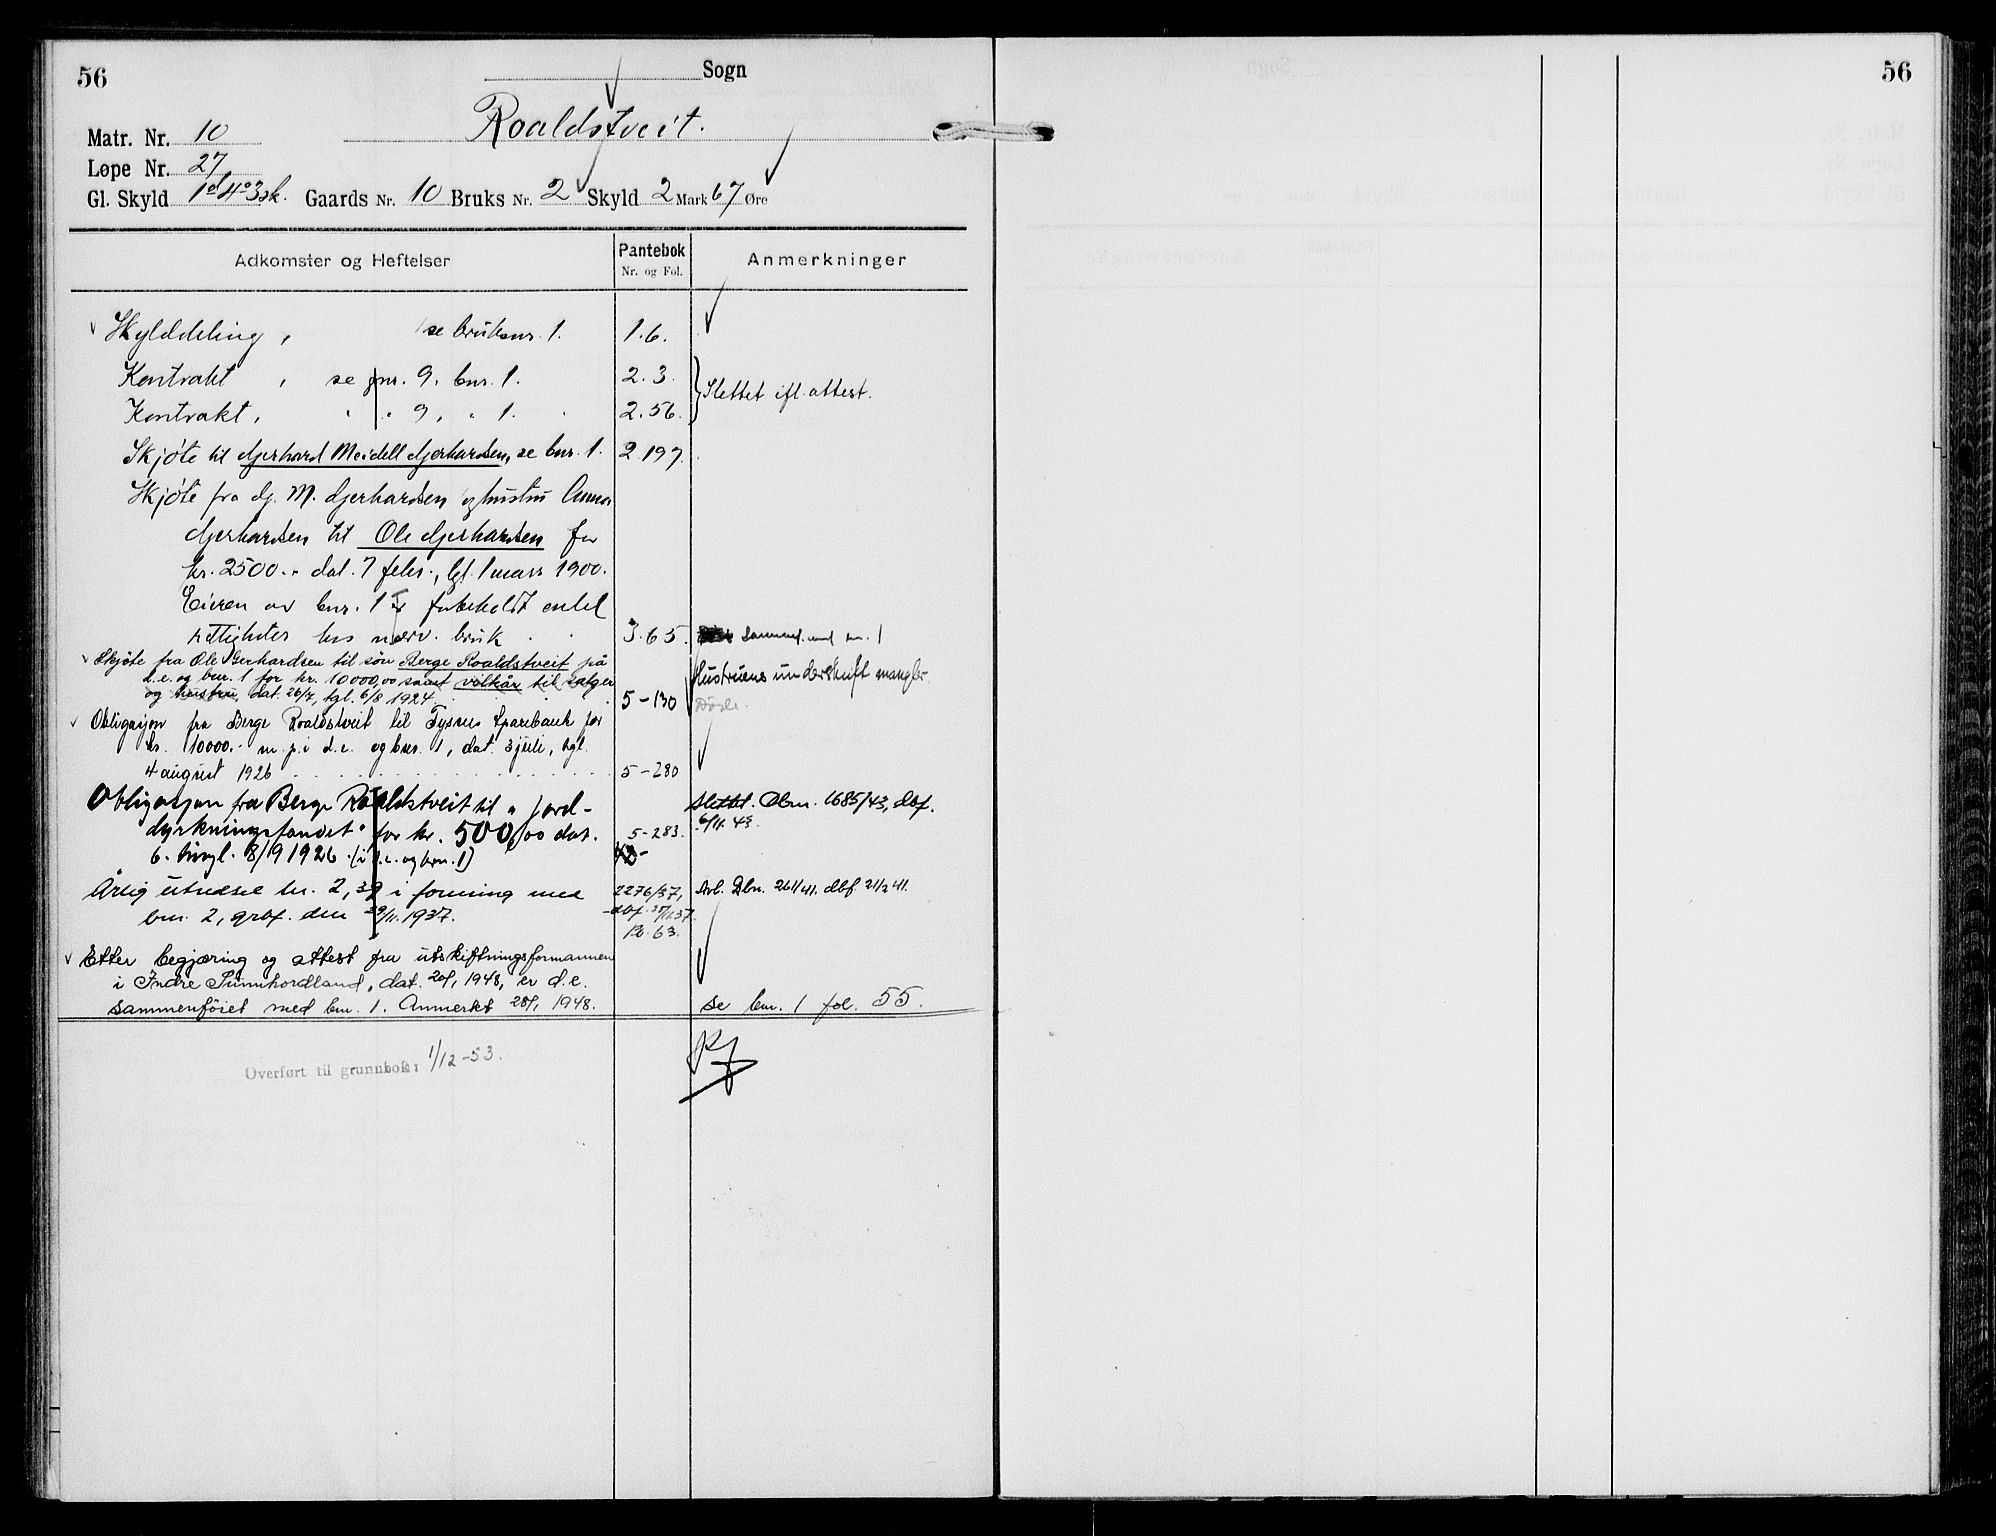 56
Sogn
56
Roaldstveit.
Matr. Nr. 10
Løpe Nr. 27
Gl. Skyld 1d 4o 3sk. Gaards Nr. 10 Bruks Nr. 2 Skyld 2 Mark 67 Øre
Adkomster og Heftelser
Pantebok
Nr. og Fol.
Anmerkninger
Skylddeling, se bruksnr. 1. 1.6.
Kontrakt, se gnr. 9, bnr. 1. 2.3.
Slettet ifl. attest.
Kontrakt, " " 9, " 1. 2.56.
Skjøte til Gjerhard Meidell Gjerhardsen, se bnr. 1. 2.197.
Skjøte fra Gj. M. Gjerhardsen og hustru Anna
Gjerhardsen til Ole Gjerhardsen for
kr. 2500.- dat. 7 febr., tgl. 1 mars 1900.
Eieren av bnr. 1 er forbeholdt endel
rettigheter hos nærv. bruk 3.65. sammef. med bnr. 1
Skjøte fra Ole Gerhardsen til søn Berge Roaldstveit på
d.e. og bnr. 1 for kr. 10000,00 samt vilkår til sælger
Hustruens underskrift mangler.
og hustru, dat. 26/7, tgl. 6/8 1924. 5-130
Obligasjon fra Berge Roaldstveit til Tysnes Sparebank for
kr. 10000.- m. p. i d.e. og bnr. 1, dat. 3 juli, tgl.
4 august 1926 5-280
Obligasjon fra Berge Roaldstveit til "Jord-
Slettet. Dbnr. 1685/43, dbf.
dyrkningsfondet" for kr. 500,00 dat. 5-283.
6/11. 43.
6. tingl. 8/9 1926. (i d.e. og bnr. 1)
Årlig utredsel kr. 2,39 i forening med 2276/37,
Avl. Dbn. 261/41. dbf. 21/2 41.
bnr. 2, grbf. den 30/11. 1937. dbf. 30/11.37.
Bo. 63.
Etter begjæring og attest fra utskiftningsformannen
i Indre Sunnhordland, dat. 20/1 1948, er d.e.
sammenføiet med bnr. 1. Anmerkt 28/1 1948. se bnr. 1 fol. 55.
Overført til grunnbok: 1/12-53.